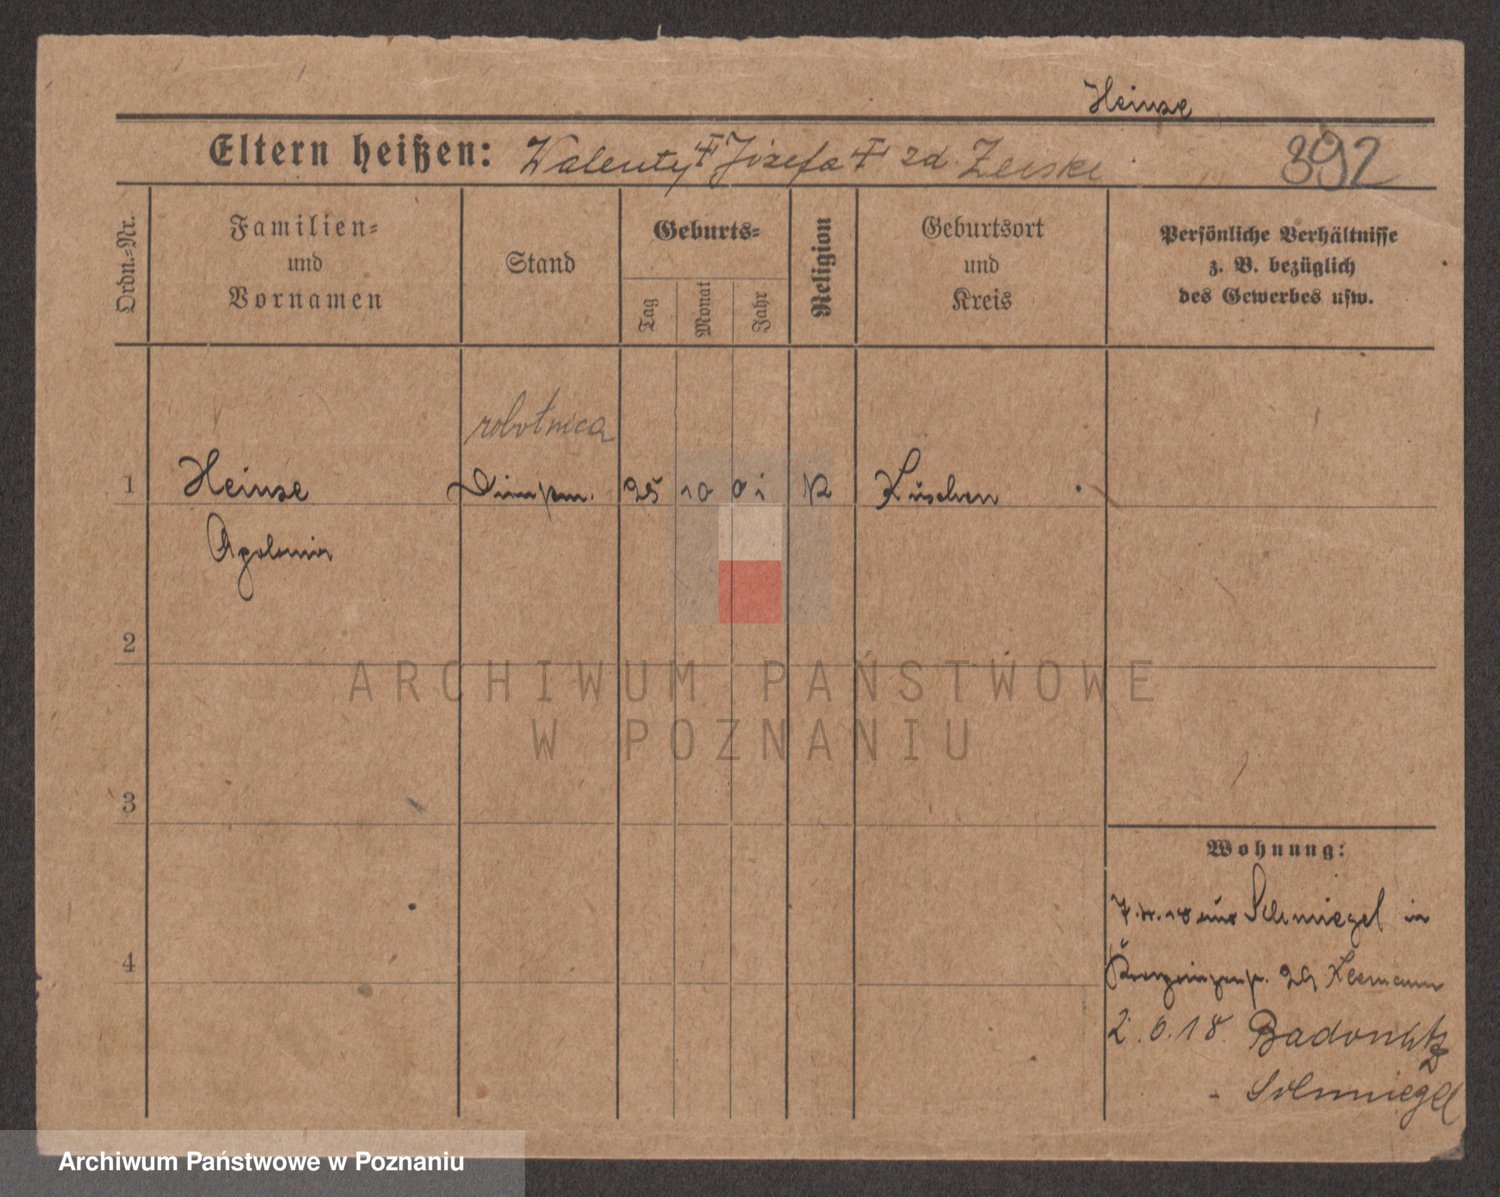 Heinze
Eltern heißen: Walenty Józefa zd. Zerske 392
Ordn.=Nr.
Familien=
und
Vornamen
Stand
Geburts=
Tag
Monat
Jahr
Religion
Geburtsort
und
Kreis
Persönliche Verhältnisse
z. B. bezüglich
des Gewerbes usw.
robotnica
1 Heinze 25 10 01 K Kuschen
Apolonia
2
ARCHIWUM PAŃSTWOWE
W POZNANIU
3
Wohnung:
aus Schmiegel in
4
Kronprinzenstr. Leemann
2.6.18
Schmiegel
Archiwum Państwowe w Poznaniu